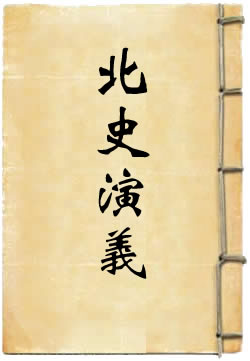 北史演義